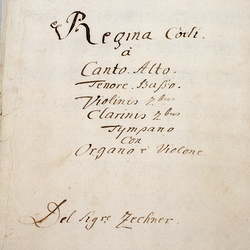 Regina Cœli.
à
Canto. Alto.
Tenore. Basso.
Violinis 2bus
Clarinis 2bus
Tympano
con
Organo è Violone
Del Sigre Zechner.